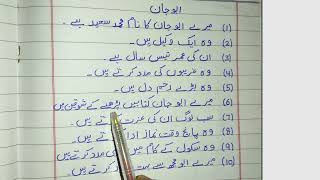 ابو جان
(1) میرے ابو جان کا نام محمد سعید ہے۔
(2) وہ ایک وکیل ہیں۔
(3) ان کی عمر تیس سال ہے۔
(4) وہ غریبوں کی مدد کرتے ہیں۔
(5) وہ بڑے رحم دل ہیں۔
(6) میرے ابو جان کتابیں پڑھنے کے شوقین ہیں
(7) سب لوگ ان کی عزت کرتے ہیں۔
(8) وہ پانچ وقت نماز ادا کرتے ہیں۔
(9) وہ سکول کے کام میں مدد کرتے ہیں
(10) میرے ابو مجھ سے بہت کرتے ہیں